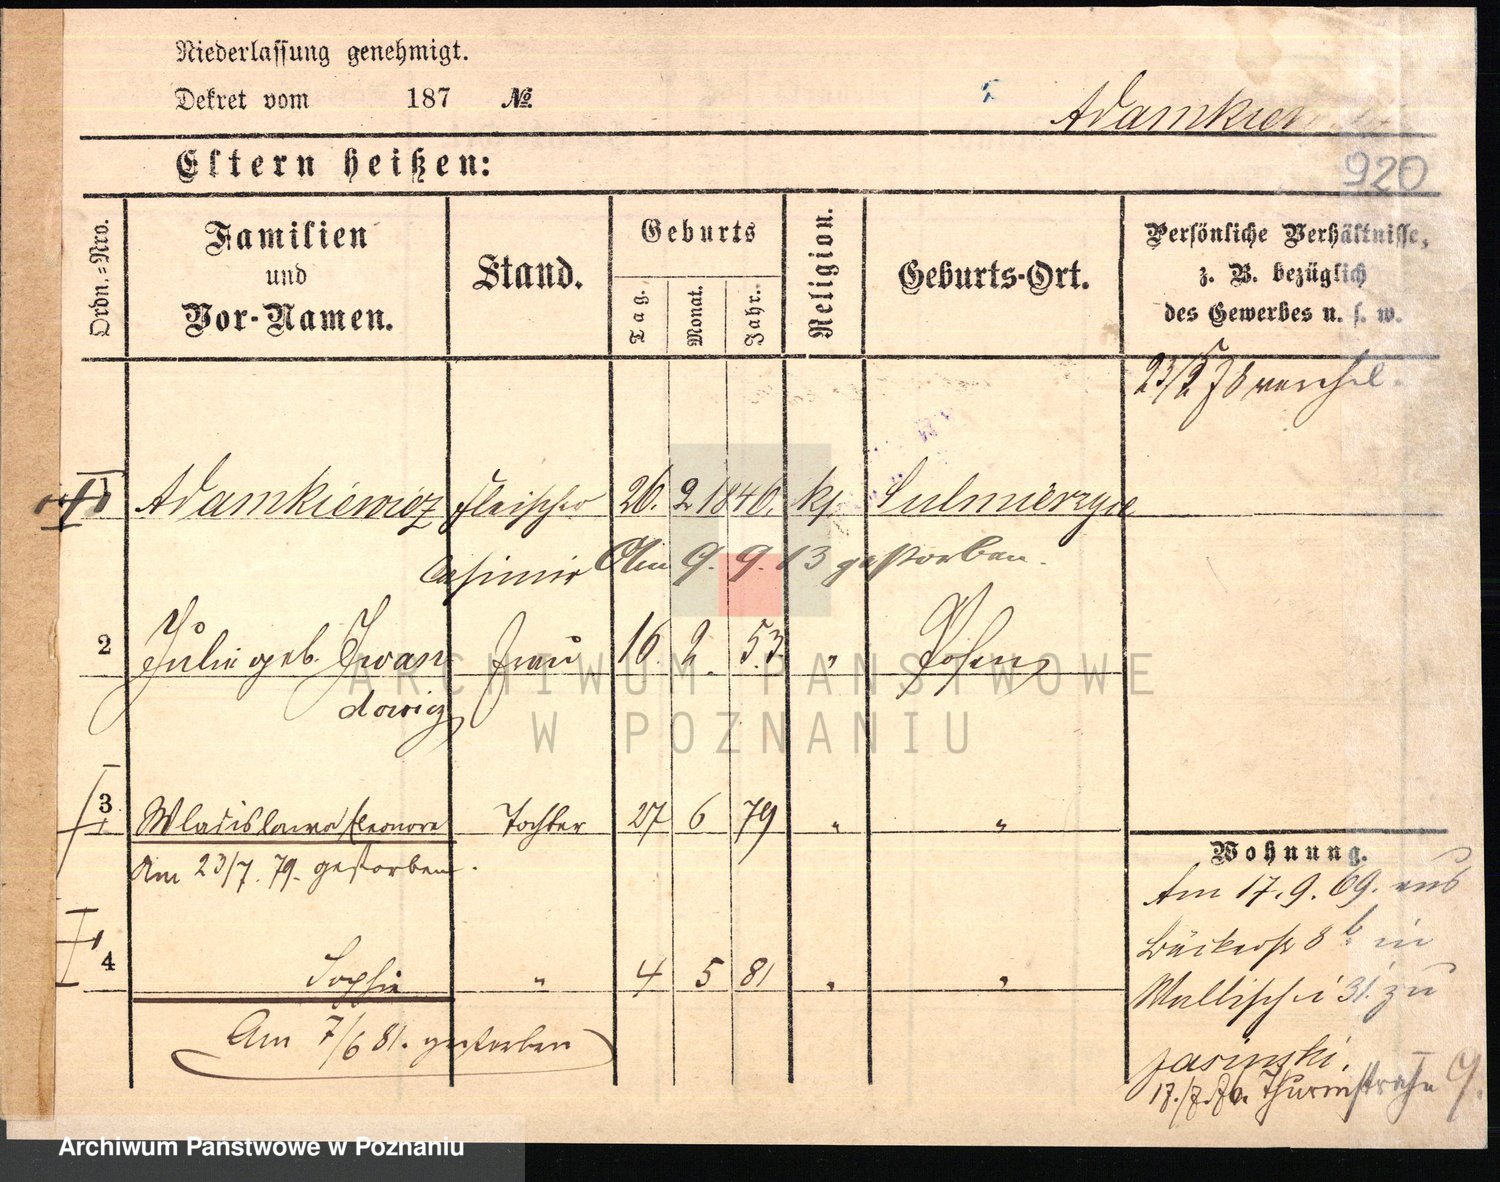 Niederlassung genehmigt.
Dekret vom 187 №
Adamkiewicz
920
Eltern heißen:
Ordn.=Nro.
Familien und Vor-Namen.
Stand.
Geburts
Tag.
Monat.
Jahr.
Religion.
Geburts-Ort.
Persönliche Verhältnisse,
z. B. bezüglich
des Gewerbes u. s. w.
1 Adamkiewicz Fleischer 26. 2 1846. kf. Sulmierzyce
Casimir Am 9. 9. 13 gestorben.
2 Julie geb. Iwan Frau 16. 2. 53. " Posen
dowicz
3 Wladislawa Eleonore Tochter 27 6 79 " "
Am 23/7. 79. gestorben.
4 Sophie " 4 5 81 " "
Am 7/6 81. gestorben
Wohnung.
Am 17. 9. 69. aus
8 b. in
Wallischei 31. zu
Jasinski.
Thurmstraße 9.
ARCHIWUM PAŃSTWOWE
W POZNANIU
Archiwum Państwowe w Poznaniu